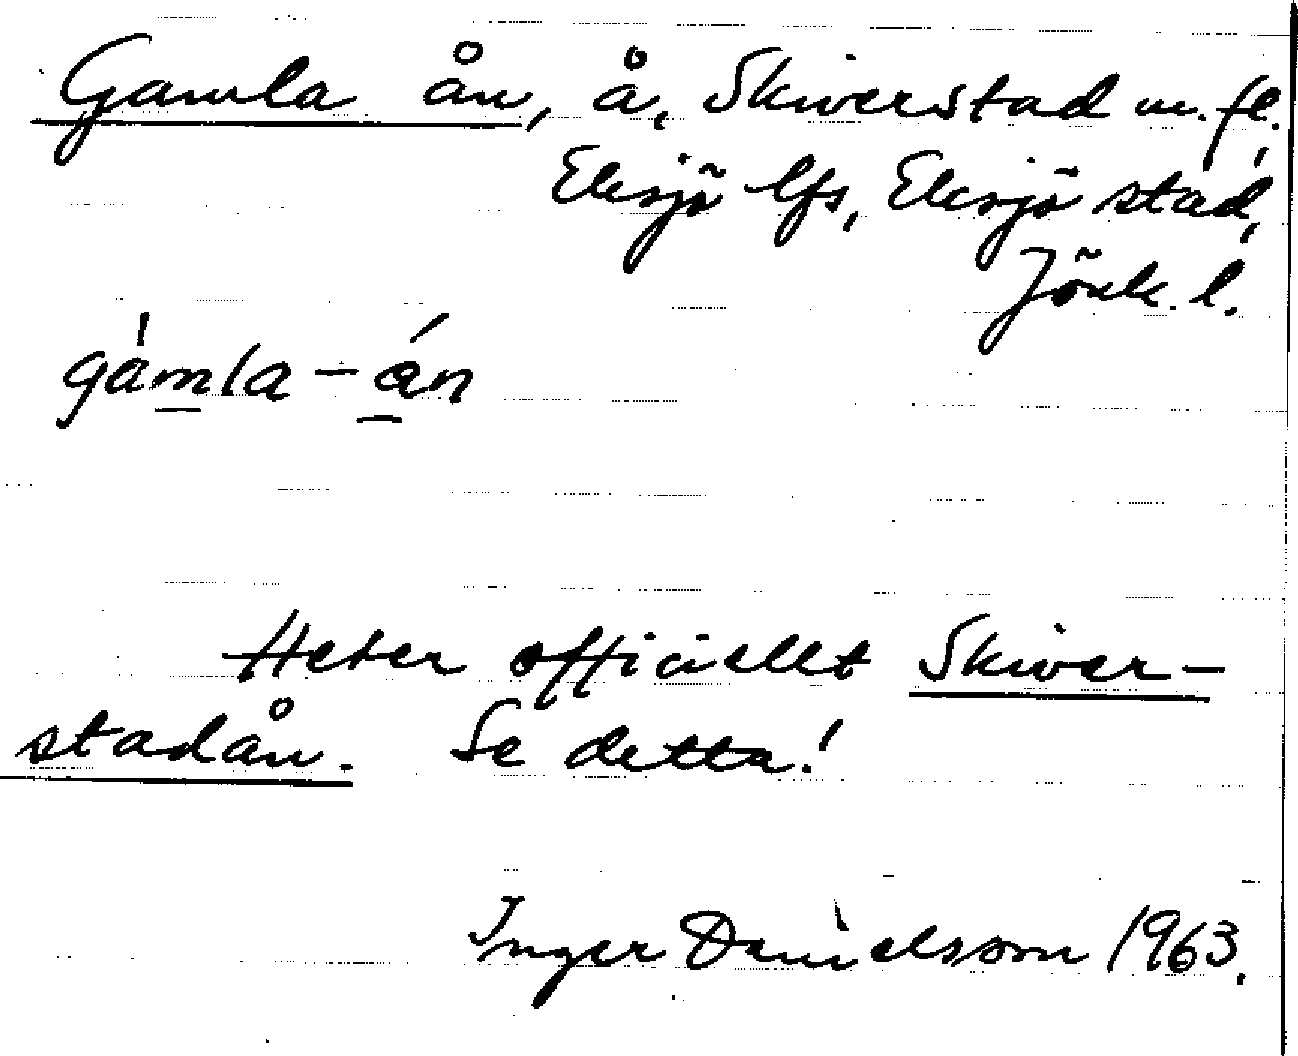 Gamla ån, å, Skiverstad m. fl.,
Eksjö lfs, Eksjö stad,
Jönk. l.
gámla-án
Heter officiellt Skiver-
stadån. Se detta!
Inger Danielsson 1963.